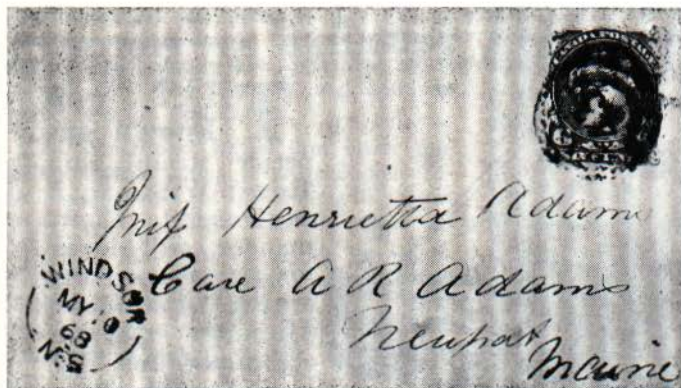 CANADA POSTAGE
Miss Henrietta Adams
Care A R Adams
Newport
Maine
WINDSOR
MY 10
68
N.S